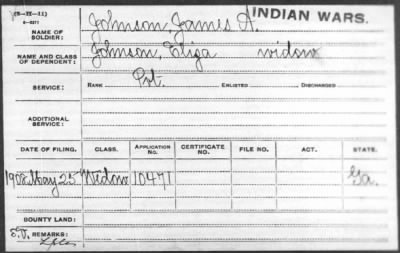 (G-IX-11)
INDIAN WARS.
NAME OF SOLDIER: Johnson, James A.
NAME AND CLASS OF DEPENDENT: Johnson, Eliza widow
SERVICE: RANK Pvt. ENLISTED DISCHARGED
ADDITIONAL SERVICE:
DATE OF FILING. CLASS. APPLICATION NO. CERTIFICATE NO. FILE NO. ACT. STATE.
1908 May 25 Widow 10471 Ga.
BOUNTY LAND:
REMARKS: